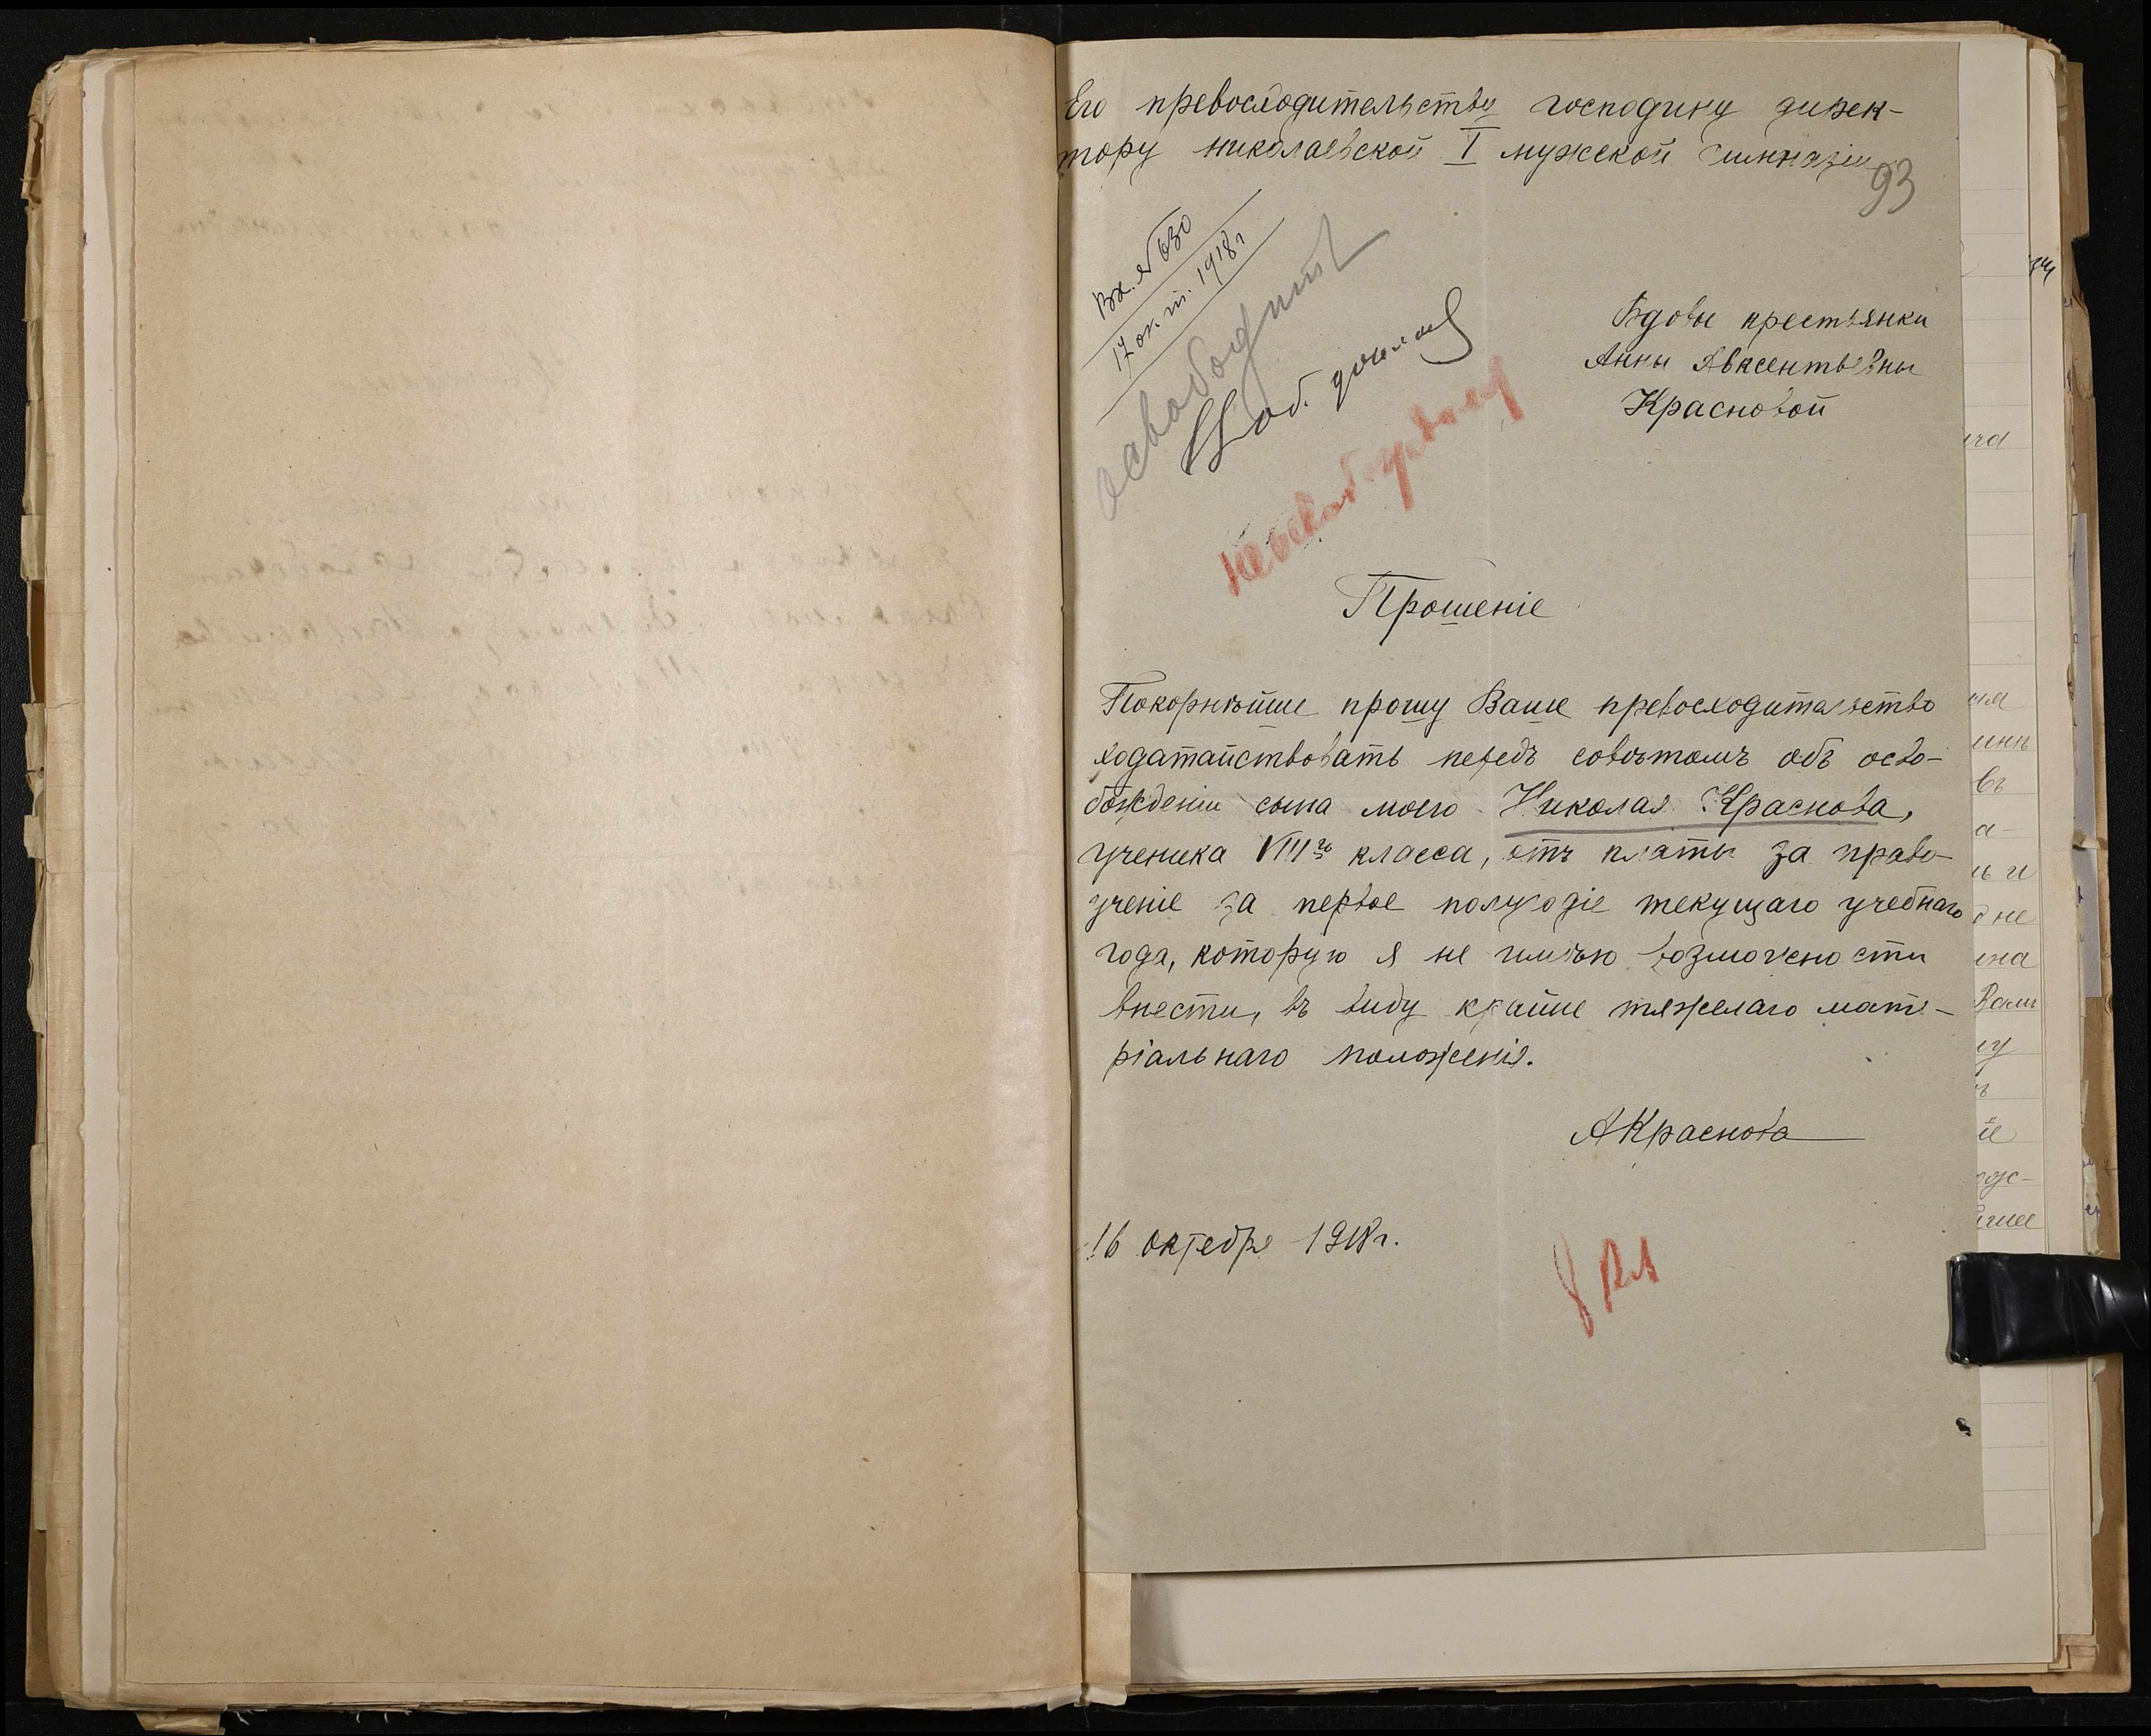 Его превосходительству господину дирек-
тору николаевской I мужской гимназіи
93
Вх. № 630
17 окт. 1918 г
освободить
Вдовы крестьянки
Анны Авксентьевны
Красновой
Прошеніе
Покорнѣйше прошу Ваше превосходительство
ходатайствовать передъ совѣтомъ объ осво-
божденіи сына моего Николая Краснова,
ученика VIII го класса, отъ платы за право-
ученіе за первое полугодіе текущаго учебнаго
года, которую я не имѣю возможности
внести, въ виду крайне тяжелаго мате-
ріальнаго положенія.
АКраснова
16 октебря 1918 г.
8 кл